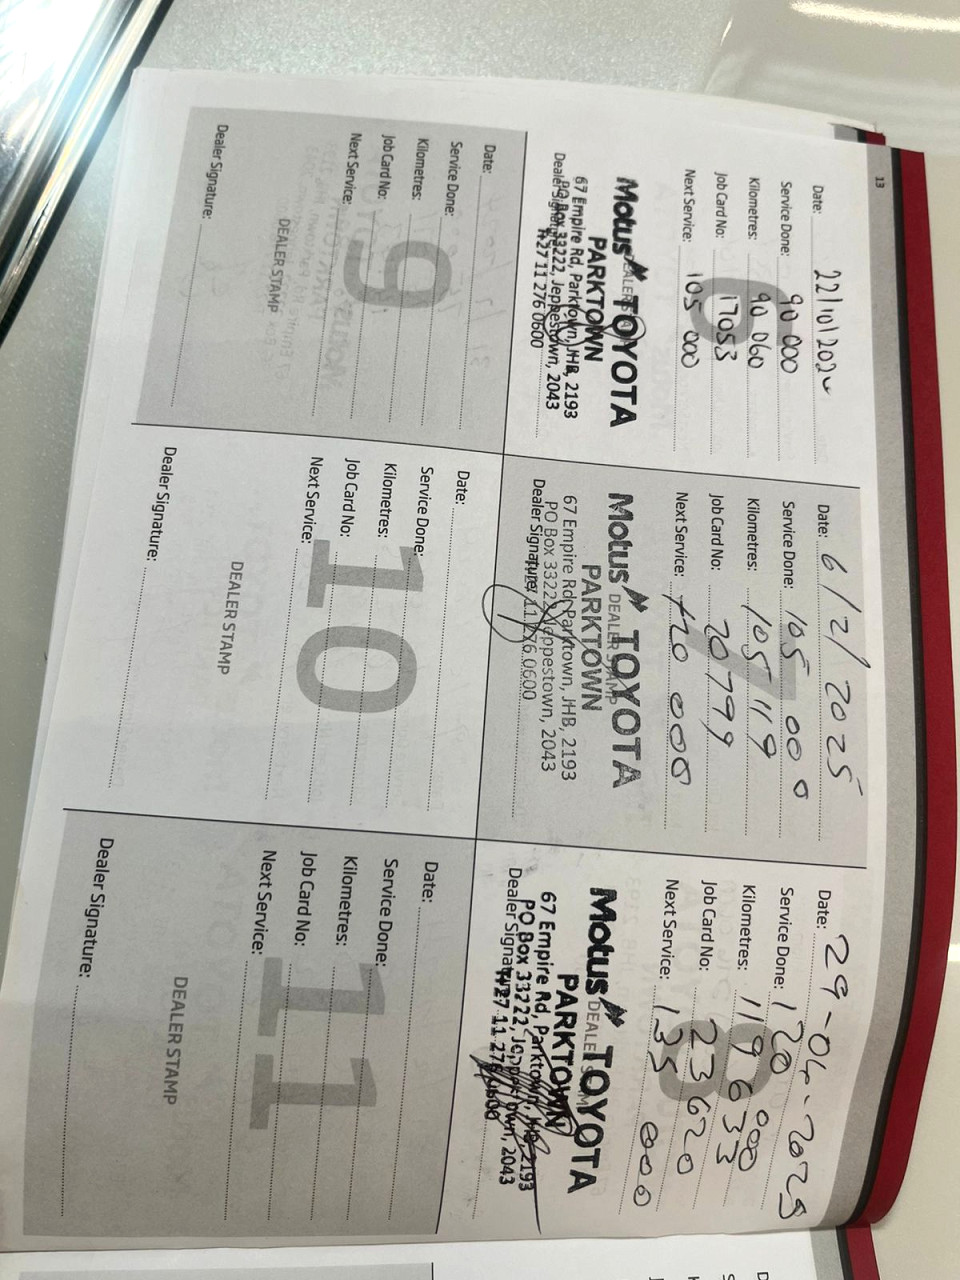 13
Date: 22/10/2024
Service Done: 90 000
Kilometres: 90 060
Job Card No: 17053
Next Service: 105 000
6
DEALER STAMP
Motus TOYOTA
PARKTOWN
67 Empire Rd, Parktown, JHB, 2193
PO Box 33222, Jeppestown, 2043
Dealer Signature:
+27 11 276 0600
Date: 6/2/2025
Service Done: 105 000
Kilometres: 105 119
Job Card No: 20799
Next Service: 120 000
7
DEALER STAMP
Motus TOYOTA
PARKTOWN
67 Empire Rd, Parktown, JHB, 2193
PO Box 33222, Jeppestown, 2043
Dealer Signature:
11 276 0600
Date: 29-04-2025
Service Done: 120 000
Kilometres: 119 633
Job Card No: 23620
Next Service: 135 000
8
DEALER STAMP
Motus TOYOTA
PARKTOWN
67 Empire Rd, Parktown, JHB, 2193
PO Box 33222, Jeppestown, 2043
Dealer Signature:
+27 11 276 0600
Date:
Service Done:
Kilometres:
Job Card No:
Next Service:
9
DEALER STAMP
Dealer Signature:
Date:
Service Done:
Kilometres:
Job Card No:
Next Service:
10
DEALER STAMP
Dealer Signature:
Date:
Service Done:
Kilometres:
Job Card No:
Next Service:
11
DEALER STAMP
Dealer Signature: